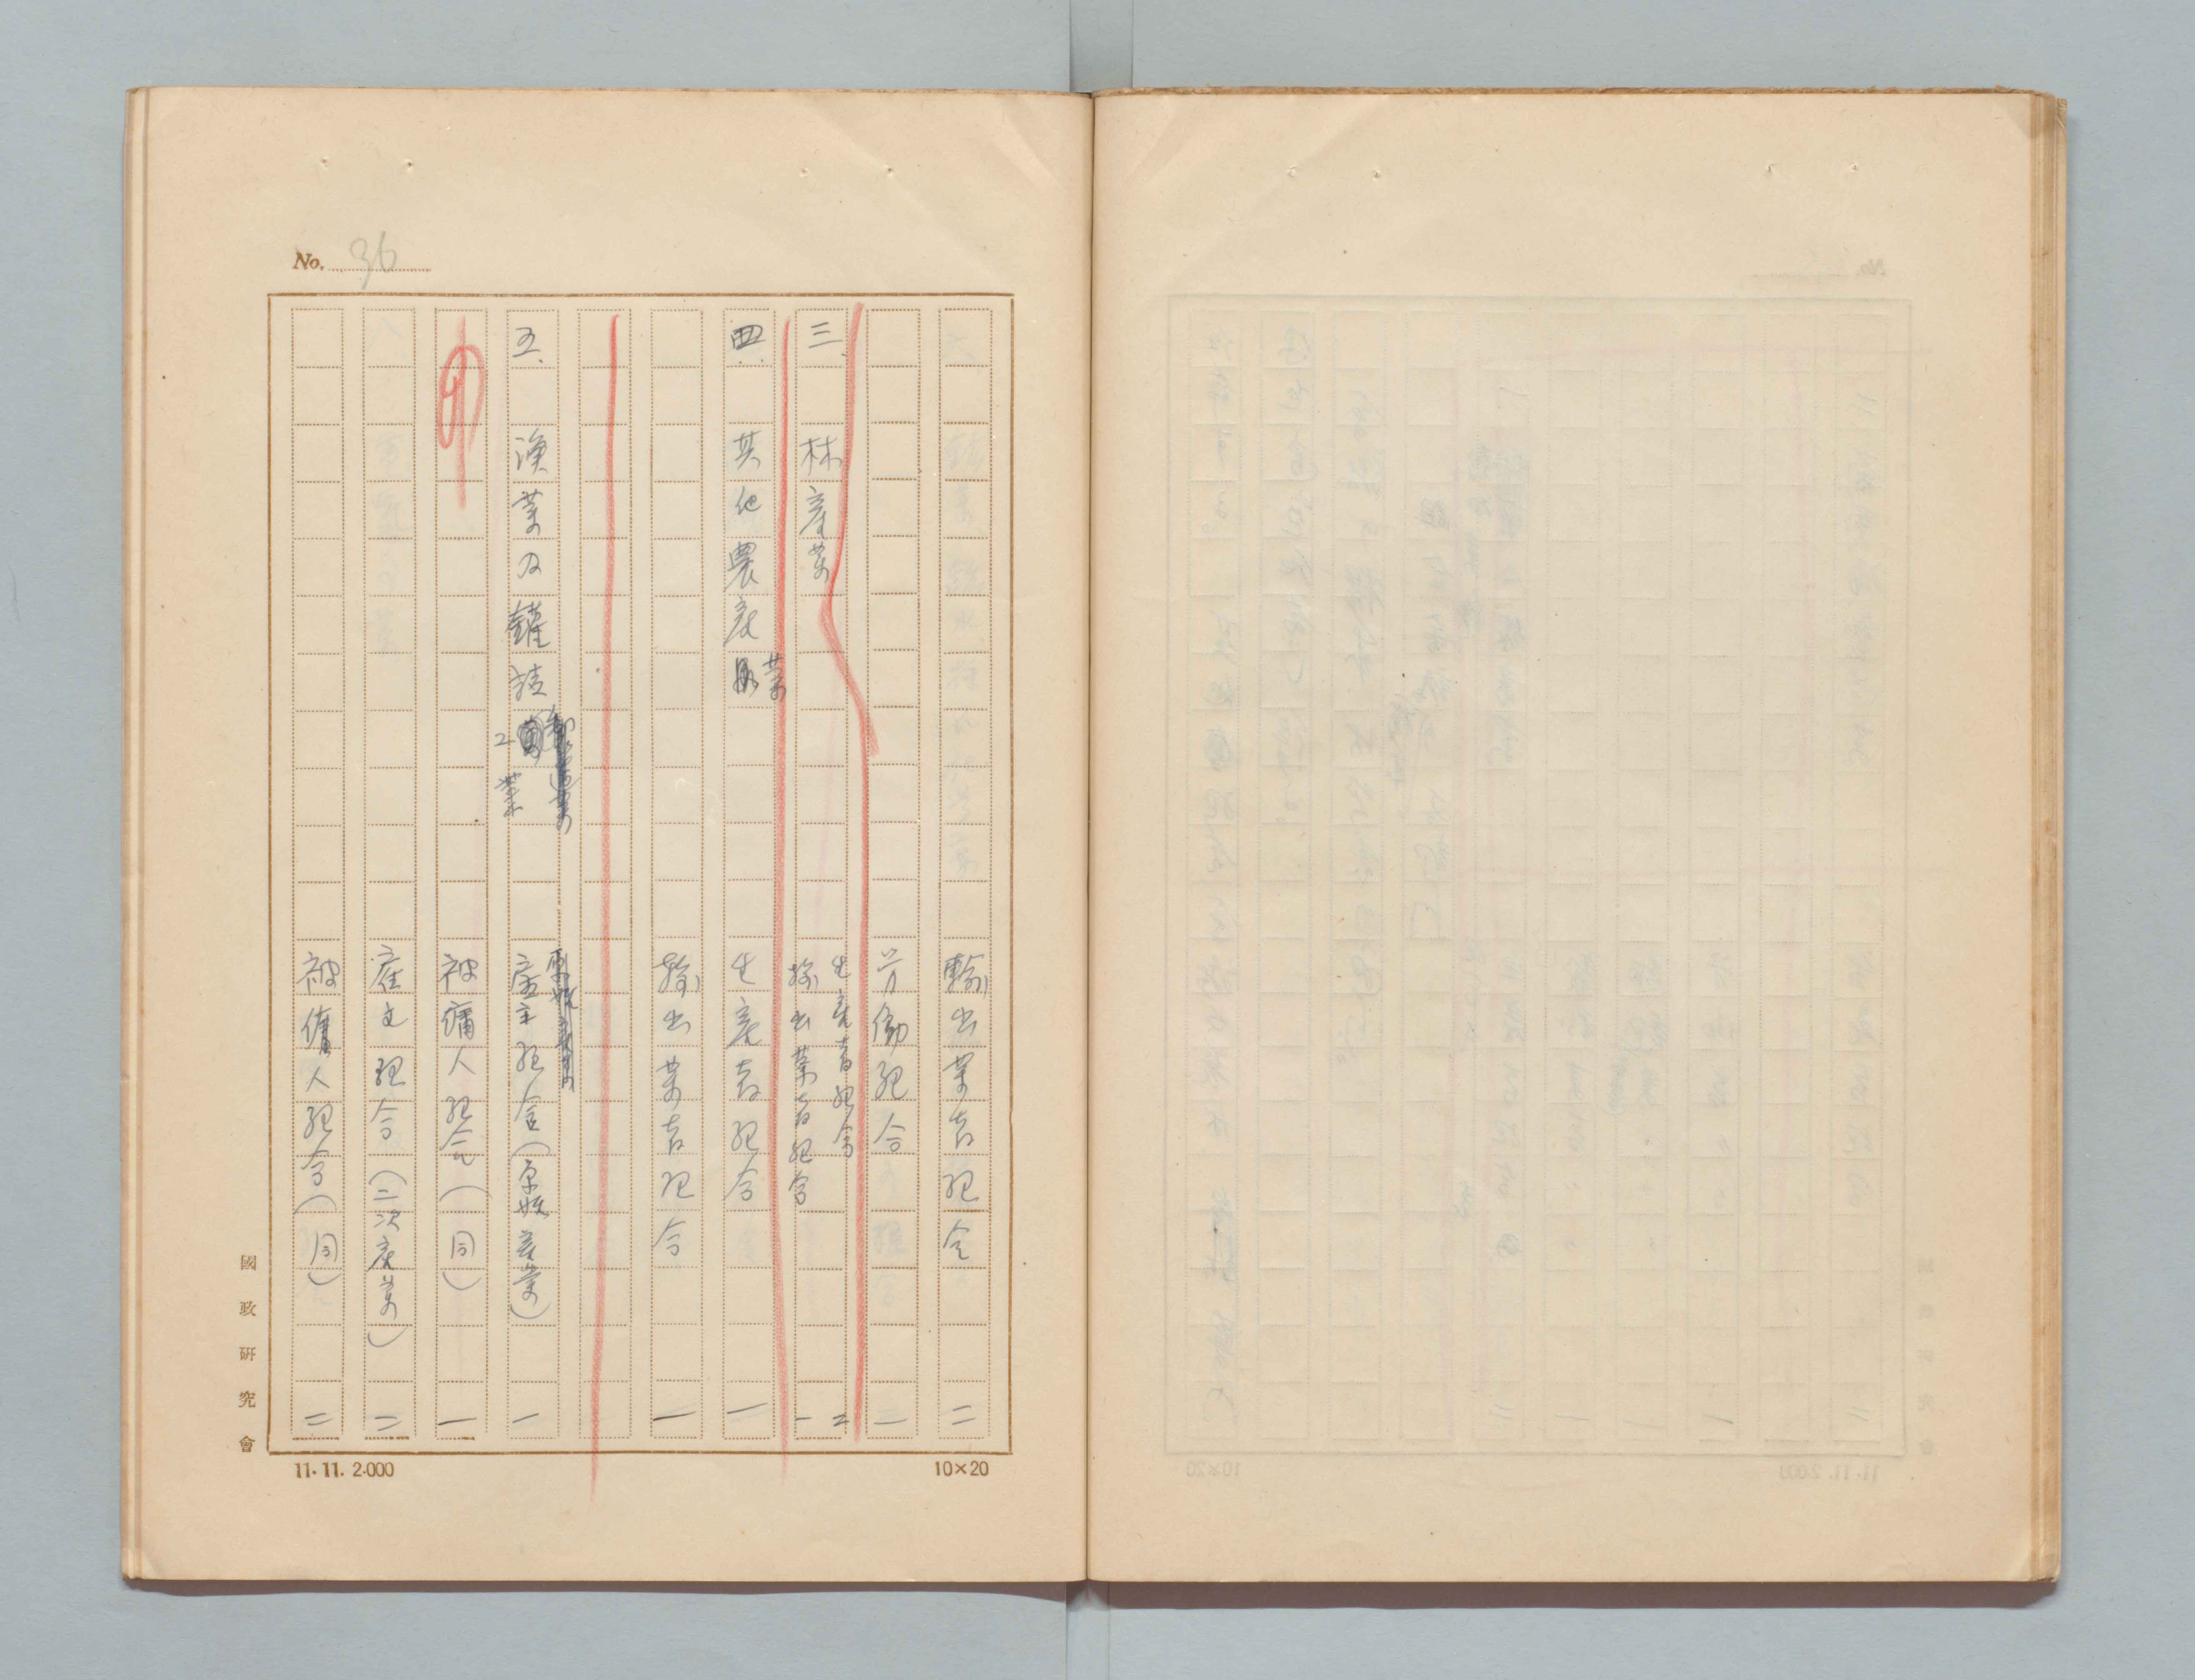 No. 36
輸出業者組合 二
労働組合 二
三、林産業 生産者組合 二
輸出業者組合 一
四、其他農産業 生産者組合 一
輸出業者組合 一
五、漁業及鑵詰工業 雇主組合(原始産業) 一
被傭人組合(同) 一
雇主組合(二次産業) 二
被傭人組合(同) 二
國政研究會
11.11. 2.000
10×20